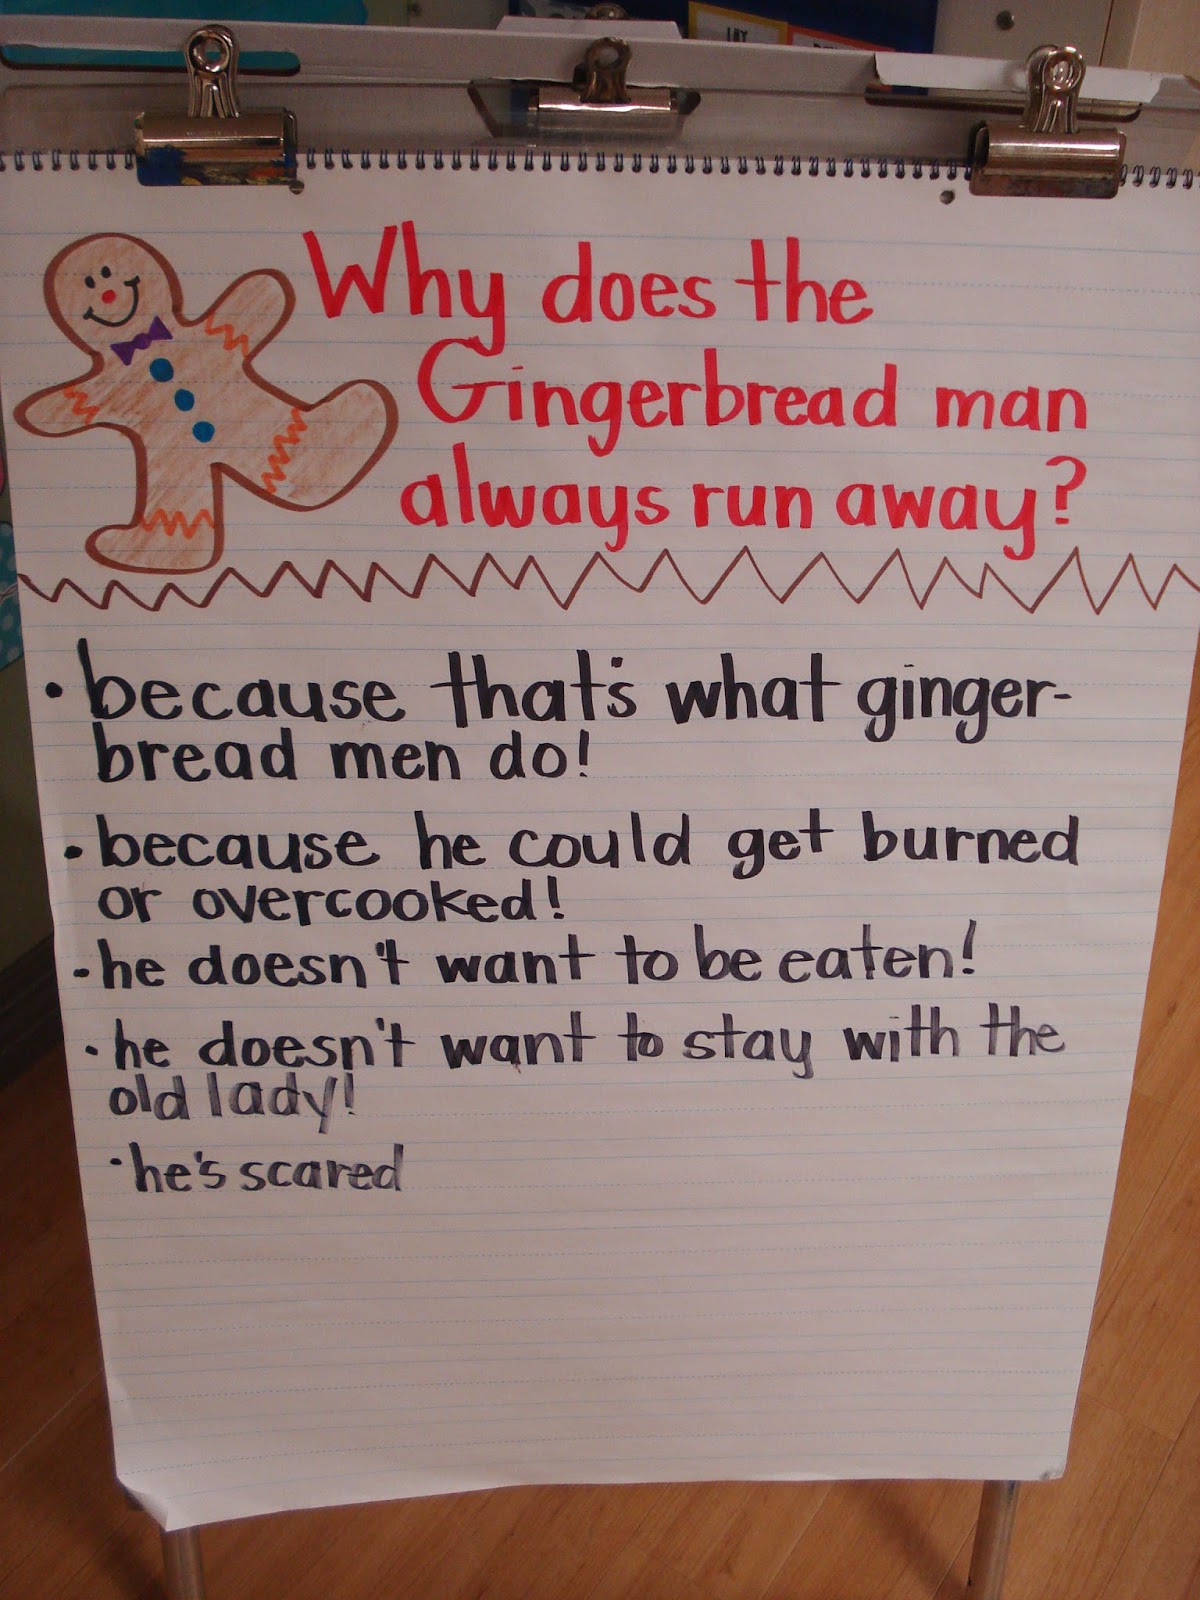 Why does the
Gingerbread man
always run away?
• because that's what ginger-
bread men do!
• because he could get burned
or overcooked!
• he doesn't want to be eaten!
• he doesn't want to stay with the
old lady!
• he's scared